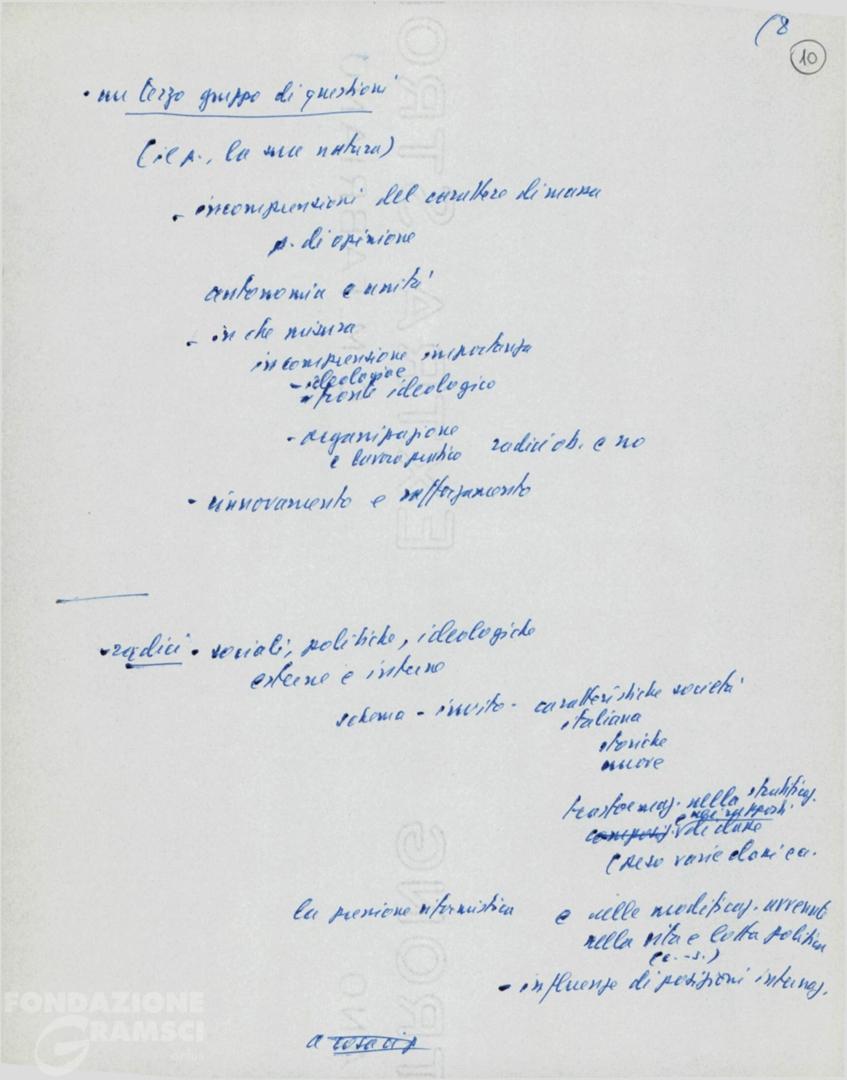 (8
10
• un terzo gruppo di questioni
(il p., la sua natura)
- incomprensioni del carattere di massa
p. di opinione
autonomia e unità
- in che misura
incomprensione importanza
- ideologiae
fronte ideologico
- organizzazione
e lavoro pratico radici ob. e no
- rinnovamento e rafforzamento
- radici • sociali, politiche, ideologiche
esterne e interne
schema - invito - caratteristiche società
italiana
storiche
nuove
trasformaz. nella stratificaz.
e nei rapporti
composiz. di classe
(peso varie classi ec.
la pressione riformistica e nelle modificaz. avvenute
nella vita e lotta politica
(c.-s.)
- influenze di posizioni internaz.
a
FONDAZIONE
GRAMSCI
onlus